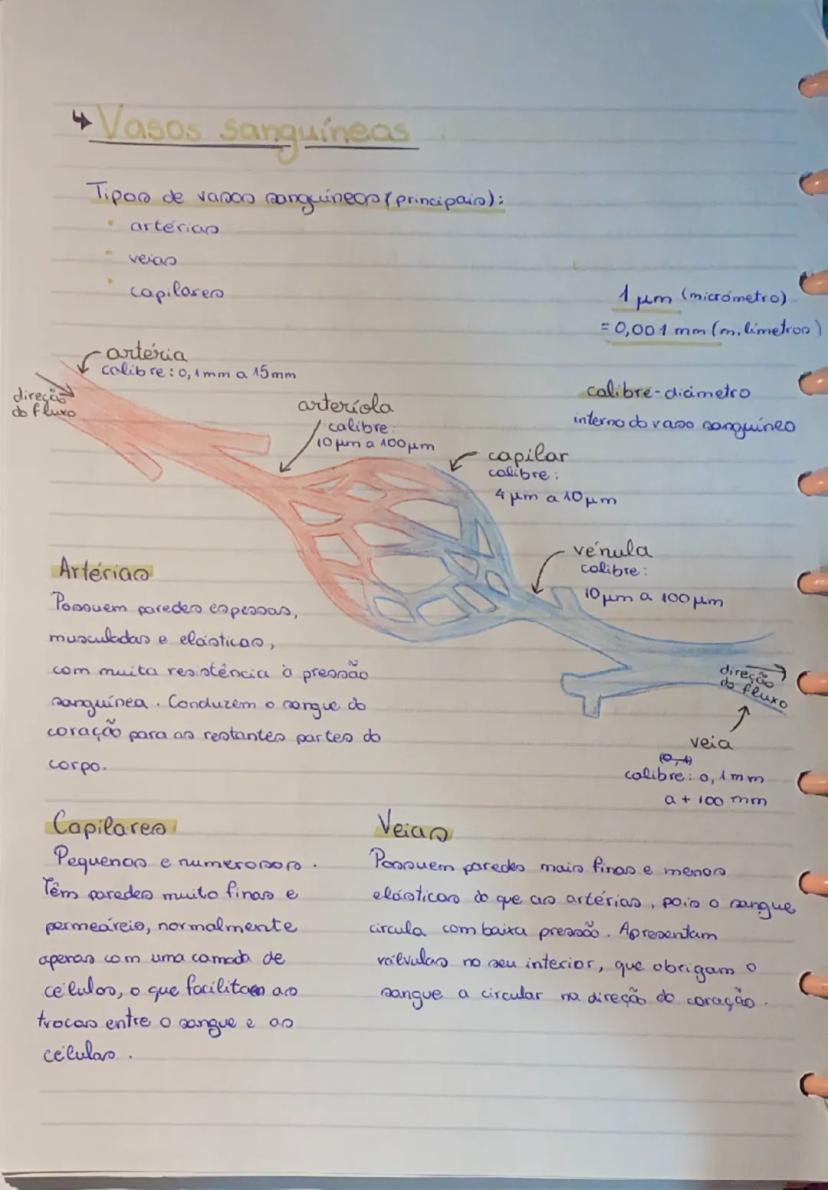 ↳ Vasos sanguíneas
Tipos de vasos sanguíneos (principais):
• artérias
• veias
• capilares
1 μm (micrómetro)
= 0,001 mm (milímetros)
calibre - diâmetro
interno do vaso sanguíneo
artéria
calibre: 0,1mm a 15mm
direção
do fluxo
arteríola
calibre:
10 μm a 100μm
capilar
calibre:
4 μm a 10μm
vénula
calibre:
10 μm a 100 μm
direção
do fluxo
veia
calibre: 0,1mm
a + 100 mm
Artérias
Possuem paredes espessas,
musculadas e elásticas,
com muita resistência à pressão
sanguínea. Conduzem o sangue do
coração para as restantes partes do
corpo.
Capilares
Pequenos e numerosos.
Têm paredes muito finas e
permeáveis, normalmente
apenas com uma camada de
células, o que facilitam as
trocas entre o sangue e as
células.
Veias
Possuem paredes mais finas e menos
elásticas do que as artérias, pois o sangue
circula com baixa pressão. Apresentam
válvulas no seu interior, que obrigam o
sangue a circular na direção do coração.